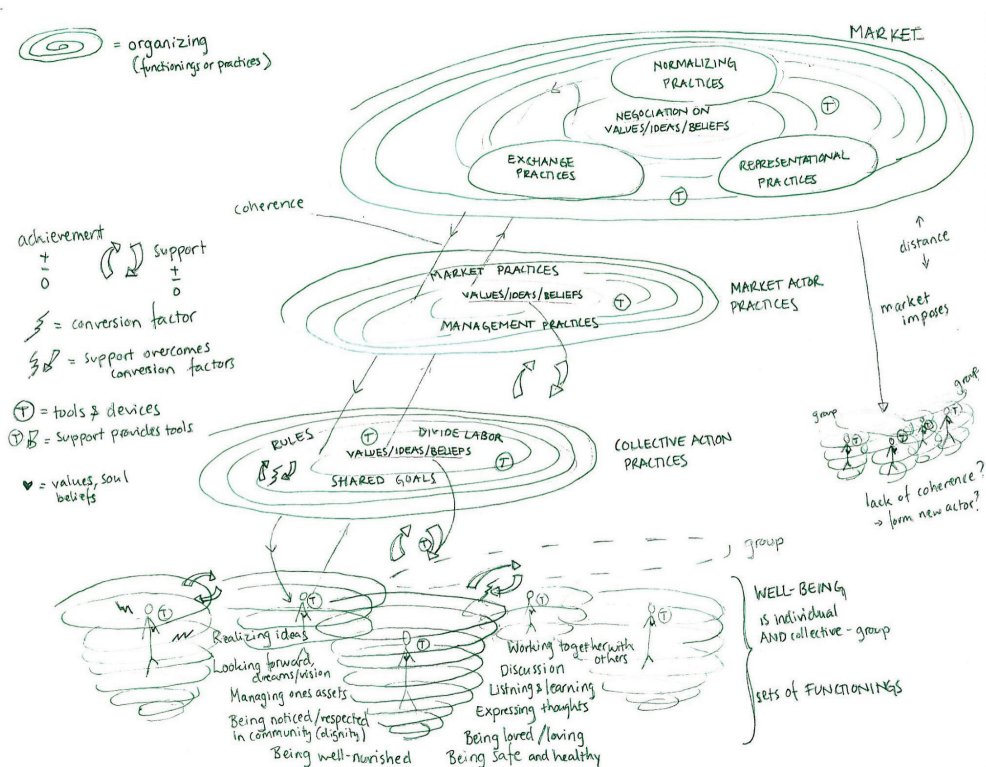 = organizing
(functionings or practices)
MARKET
NORMALIZING
PRACTICES
NEGOCIATION ON
VALUES/IDEAS/BELIEFS
T
EXCHANGE
PRACTICES
REPRESENTATIONAL
PRACTICES
T
coherence
achievement
+
-
0
support
+
-
0
= conversion factor
= support overcomes
conversion factors
T = tools & devices
T = Support provides tools
♥ = values, soul
beliefs
MARKET PRACTICES
VALUES/IDEAS/BELIEFS
T
MANAGEMENT PRACTICES
MARKET ACTOR
PRACTICES
distance
market
imposes
group
group
T
T
T
T
lack of coherence?
→ form new actor?
RULES
T
DIVIDE LABOR
VALUES/IDEAS/BELIEFS
T
SHARED GOALS
COLLECTIVE ACTION
PRACTICES
T
group
T
T
T
T
T
Realizing ideas
Looking forward,
dreams/vision
Managing ones assets
Being noticed/respected
in community (dignity)
Being well-nurished
Working together with
others
Discussion
Listning & learning
Expressing thoughts
Being loved/loving
Being safe and healthy
WELL-BEING
is individual
AND collective-group
sets of FUNCTIONINGS